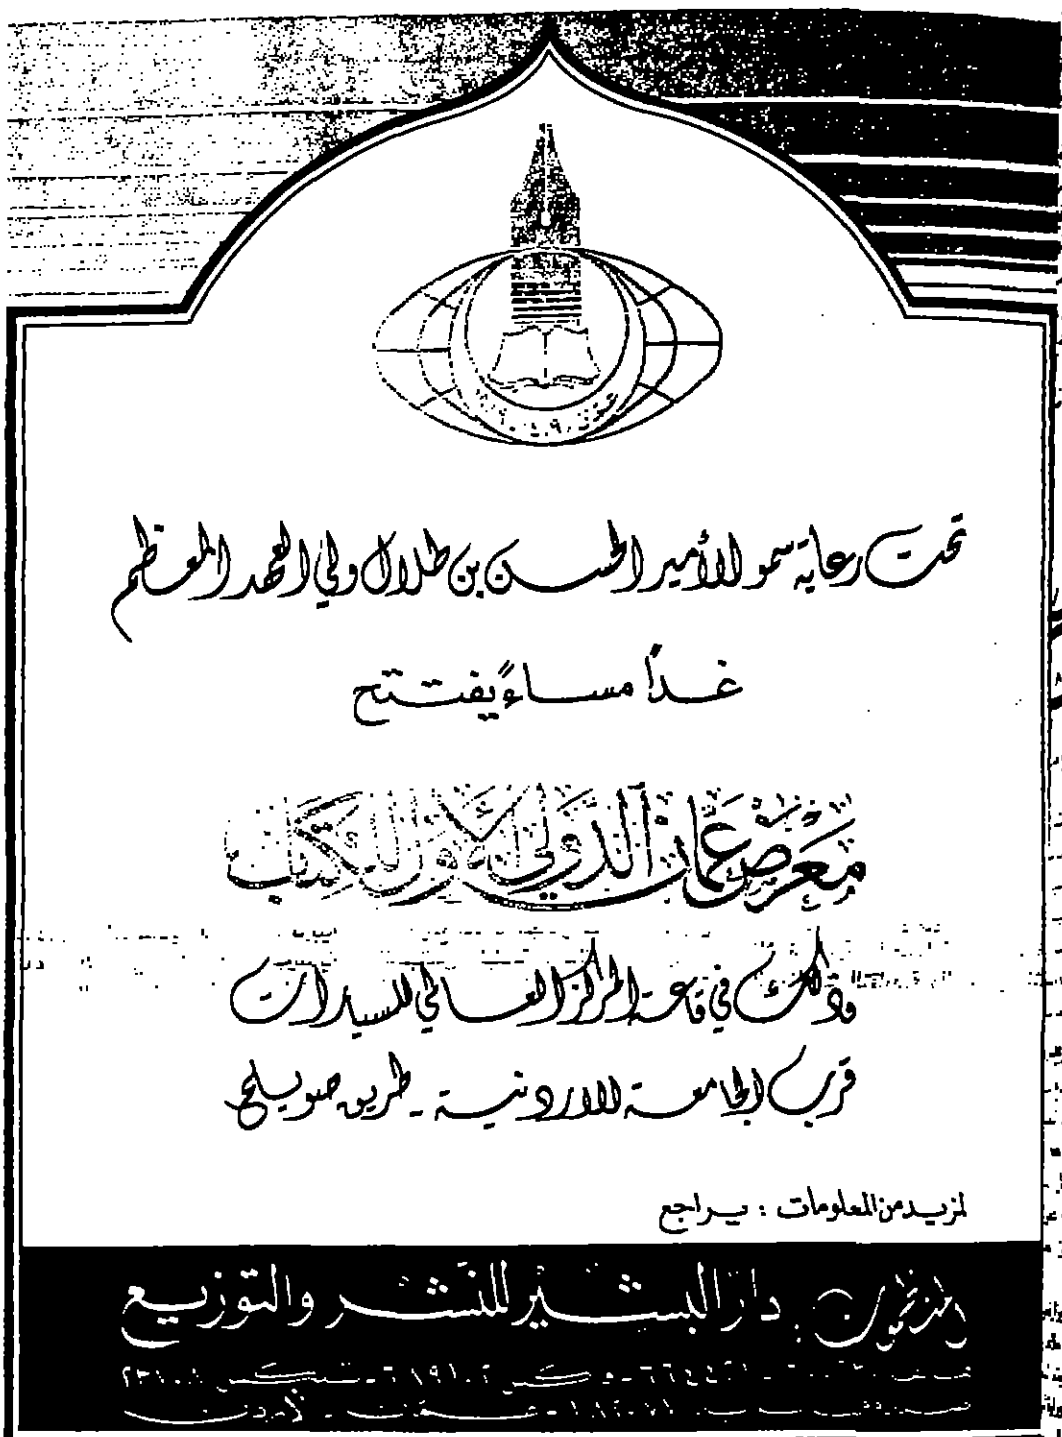 تحت رعاية سمو الأمير الحسن بن طلال ولي العهد المعظم
غداً مساءً يفتتح
معرض عمان الدولي الأول للكتاب
وذلك في قاعة المركز العالمي للسيارات
قرب الجامعة الاردنية - طريق صويلح
لمزيد من المعلومات : يراجع
المنظمون : دار البشير للنشر والتوزيع
فاكس - تلكس
عمان - الأردن